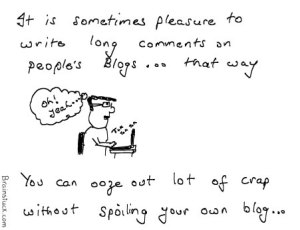 It is sometimes pleasure to
write long comments on
people's Blogs... that way
Oh!
yeah...
You can ooze out lot of crap
without spoiling your own blog...
Brainstuck.com